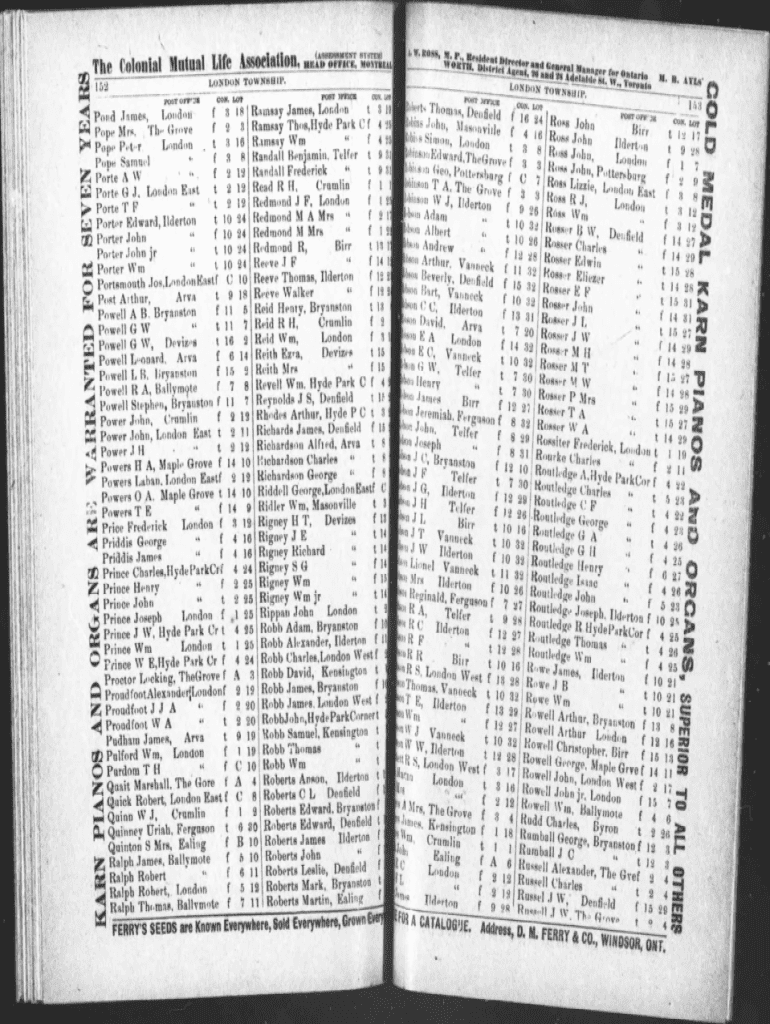 The Colonial Mutual Life Association, (ASSESSMENT SYSTEM) HEAD OFFICE, MONTREAL
152 LONDON TOWNSHIP.
KARN PIANOS AND ORGANS ARE WARRANTED FOR SEVEN YEARS
POST OFFICE CON. LOT
Pond James, London f 3 18
Pope Mrs, The Grove f 2 3
Pope Peter London t 3 16
Pope Samuel " f 3 8
Porte A W " f 2 12
Porte G J, London East t 2 12
Porte T F " t 2 12
Porter Edward, Ilderton t 10 24
Porter John " f 10 24
Porter John jr " t 10 24
Porter Wm " t 10 24
Portsmouth Jos, London East f C 10
Post Arthur, Arva t 9 18
Powell A B, Bryanston f 11 5
Powell G W " t 11 7
Powell G W, Devizes t 16 2
Powell Leonard, Arva f 6 14
Powell L B, Bryanston f 15 2
Powell R A, Ballymote f 7 8
Powell Stephen, Bryanston f 11 7
Power John, Crumlin f 2 12
Power John, London East t 2 11
Power J H " t 2 12
Powers H A, Maple Grove f 14 10
Powers Laban, London East f 2 12
Powers O A, Maple Grove t 14 10
Powers T E " f 14 9
Price Frederick London f 3 19
Priddis George " f 4 16
Priddis James " f 4 16
Prince Charles, Hyde Park Cr f 4 24
Prince Henry " f 2 25
Prince John " t 2 25
Prince Joseph London f 1 25
Prince J W, Hyde Park Cr t 4 25
Prince Wm London t 1 25
Prince W E, Hyde Park Cr f 4 24
Proctor Locking, The Grove f A 3
Proudfoot Alexander, London f 2 19
Proudfoot J J A " f 2 20
Proudfoot W A " t 2 20
Pudham James, Arva t 9 19
Pulford Wm, London f 1 19
Purdom T H " f C 10
Quait Marshall, The Gore f A 4
Quick Robert, London East f C 8
Quinn W J, Crumlin f 1 2
Quinney Uriah, Ferguson t 6 20
Quinton S Mrs, Ealing f B 10
Ralph James, Ballymote f 5 10
Ralph Robert " f 6 11
Ralph Robert, London f 5 12
Ralph Thomas, Ballymote f 7 11
POST OFFICE
Ramsay James, London
Ramsay Thos, Hyde Park C f
Ramsay Wm "
Randall Benjamin, Telfer
Randall Frederick "
Read R H, Crumlin
Redmond J F, London
Redmond M A Mrs "
Redmond M Mrs "
Redmond R, Birr
Reeve J F "
Reeve Thomas, Ilderton
Reeve Walker "
Reid Henry, Bryanston
Reid R H, Crumlin
Reid Wm, London
Reith Ezra, Devizes
Reith Mrs "
Revell Wm, Hyde Park C
Reynolds J S, Denfield
Rhodes Arthur, Hyde P C
Richards James, Denfield
Richardson Alfred, Arva
Richardson Charles "
Richardson George "
Riddell George, London East
Ridler Wm, Masonville
Rigney H T, Devizes
Rigney J E "
Rigney Richard "
Rigney S G "
Rigney Wm "
Rigney Wm jr "
Rippan John London
Robb Adam, Bryanston
Robb Alexander, Ilderton
Robb Charles, London West
Robb David, Kensington
Robb James, Bryanston
Robb James, London West
Robb John, Hyde Park Corner
Robb Samuel, Kensington
Robb Thomas "
Robb Wm "
Roberts Anson, Ilderton
Roberts C L Denfield
Roberts Edward, Bryanston
Roberts Edward, Denfield
Roberts James Ilderton
Roberts John "
Roberts Leslie, Denfield
Roberts Mark, Bryanston
Roberts Martin, Ealing
FERRY'S SEEDS are Known Everywhere, Sold Everywhere, Grown Every
W. ROSS, M. P., Resident Director and General Manager for Ontario
WORTH, District Agent, 26 and 28 Adelaide St. W., Toronto
LONDON TOWNSHIP. 153
GOLD MEDAL KARN PIANOS AND ORGANS, SUPERIOR TO ALL OTHERS
POST OFFICE CON. LOT
Thomas, Denfield f 16 24
John, Masonville f 4 16
Simon, London t 3 8
Edward, The Grove f 3 3
Geo, Pottersburg f C 7
T A, The Grove f 3 3
W J, Ilderton f 9 26
Adam " t 10 32
Albert " t 10 26
Andrew " f 12 28
Arthur, Vanneck f 11 32
Beverly, Denfield f 15 32
Bart, Vanneck f 10 32
C C, Ilderton f 13 31
David, Arva t 7 20
E A London f 14 32
E C, Vanneck t 10 32
G W, Telfer t 7 30
Henry " t 7 30
James Birr f 12 27
Jeremiah, Ferguson f 8 32
John, Telfer f 8 29
Joseph " f 8 31
J C, Bryanston f 12 10
J F Telfer t 7 30
J G, Ilderton f 12 29
J H Telfer f 12 28
J L Birr t 10 16
J T Vanneck f 10 32
J W Ilderton f 10 32
Lionel Vanneck t 11 32
Mrs Ilderton f 10 26
Reginald, Ferguson f 7 27
R A, Telfer t 9 28
R C Ilderton f 12 27
R F " t 12 28
R R Birr t 10 16
R S, London West f 13 28
Thomas, Vanneck t 10 32
T E, Ilderton f 13 29
Wm " f 12 27
W J Vanneck t 10 32
W W, Ilderton t 12 28
R S, London West f 3 17
London t 3 16
" f 2 12
A Mrs, The Grove f 3 4
James, Kensington f 1 18
Wm, Crumlin t 1 1
Ealing f A 6
London f 2 12
" f 2 12
Ilderton f 9 28
POST OFFICE CON. LOT
Ross John Birr t 12 17
Ross John Ilderton t 9 28
Ross John, London f 1 7
Ross John, Pottersburg f 2 9
Ross Lizzie, London East f 3 8
Ross R J, London t 3 12
Ross Wm " f 3 12
Rosser B W, Denfield f 14 27
Rosser Charles " f 14 29
Rosser Edwin " t 15 28
Rosser Eliezer " t 14 28
Rosser E F " t 15 31
Rosser John " f 14 31
Rosser J L " t 15 27
Rosser J W " f 14 29
Rosser M H " f 14 28
Rosser M T " f 15 27
Rosser M W " f 14 28
Rosser P Mrs " f 15 29
Rosser T A " t 15 27
Rosser W A " t 14 29
Rossiter Frederick, London t 1 19
Rourke Charles " f 2 11
Routledge A, Hyde Park Cor f 4 22
Routledge Charles " t 5 23
Routledge C F " t 4 22
Routledge George " f 4 23
Routledge G A " t 4 26
Routledge G H " f 4 25
Routledge Henry " f 6 27
Routledge Isaac " f 4 26
Routledge John " f 5 23
Routledge Joseph, Ilderton f 10 28
Routledge R Hyde Park Cor f 4 25
Routledge Thomas " t 4 26
Routledge Wm " f 4 25
Rowe James, Ilderton f 10 21
Rowe J B " t 10 21
Rowe Wm " t 10 21
Rowell Arthur, Bryanston f 13 8
Rowell Arthur London f 12 16
Rowell Christopher, Birr f 15 13
Rowell George, Maple Grve f 14 11
Rowell John, London West f 2 17
Rowell John jr, London f 15 7
Rowell Wm, Ballymote f 4 6
Rudd Charles, Byron t 2 26
Rumball George, Bryanston f 12 3
Rumball J C " t 12 3
Russell Alexander, The Gve f 2 4
Russell Charles " t 2 4
Russel J W, Denfield f 15 29
Russell J W, The Grove t 2 4
FOR A CATALOGUE. Address, D. M. FERRY & CO., WINDSOR, ONT.